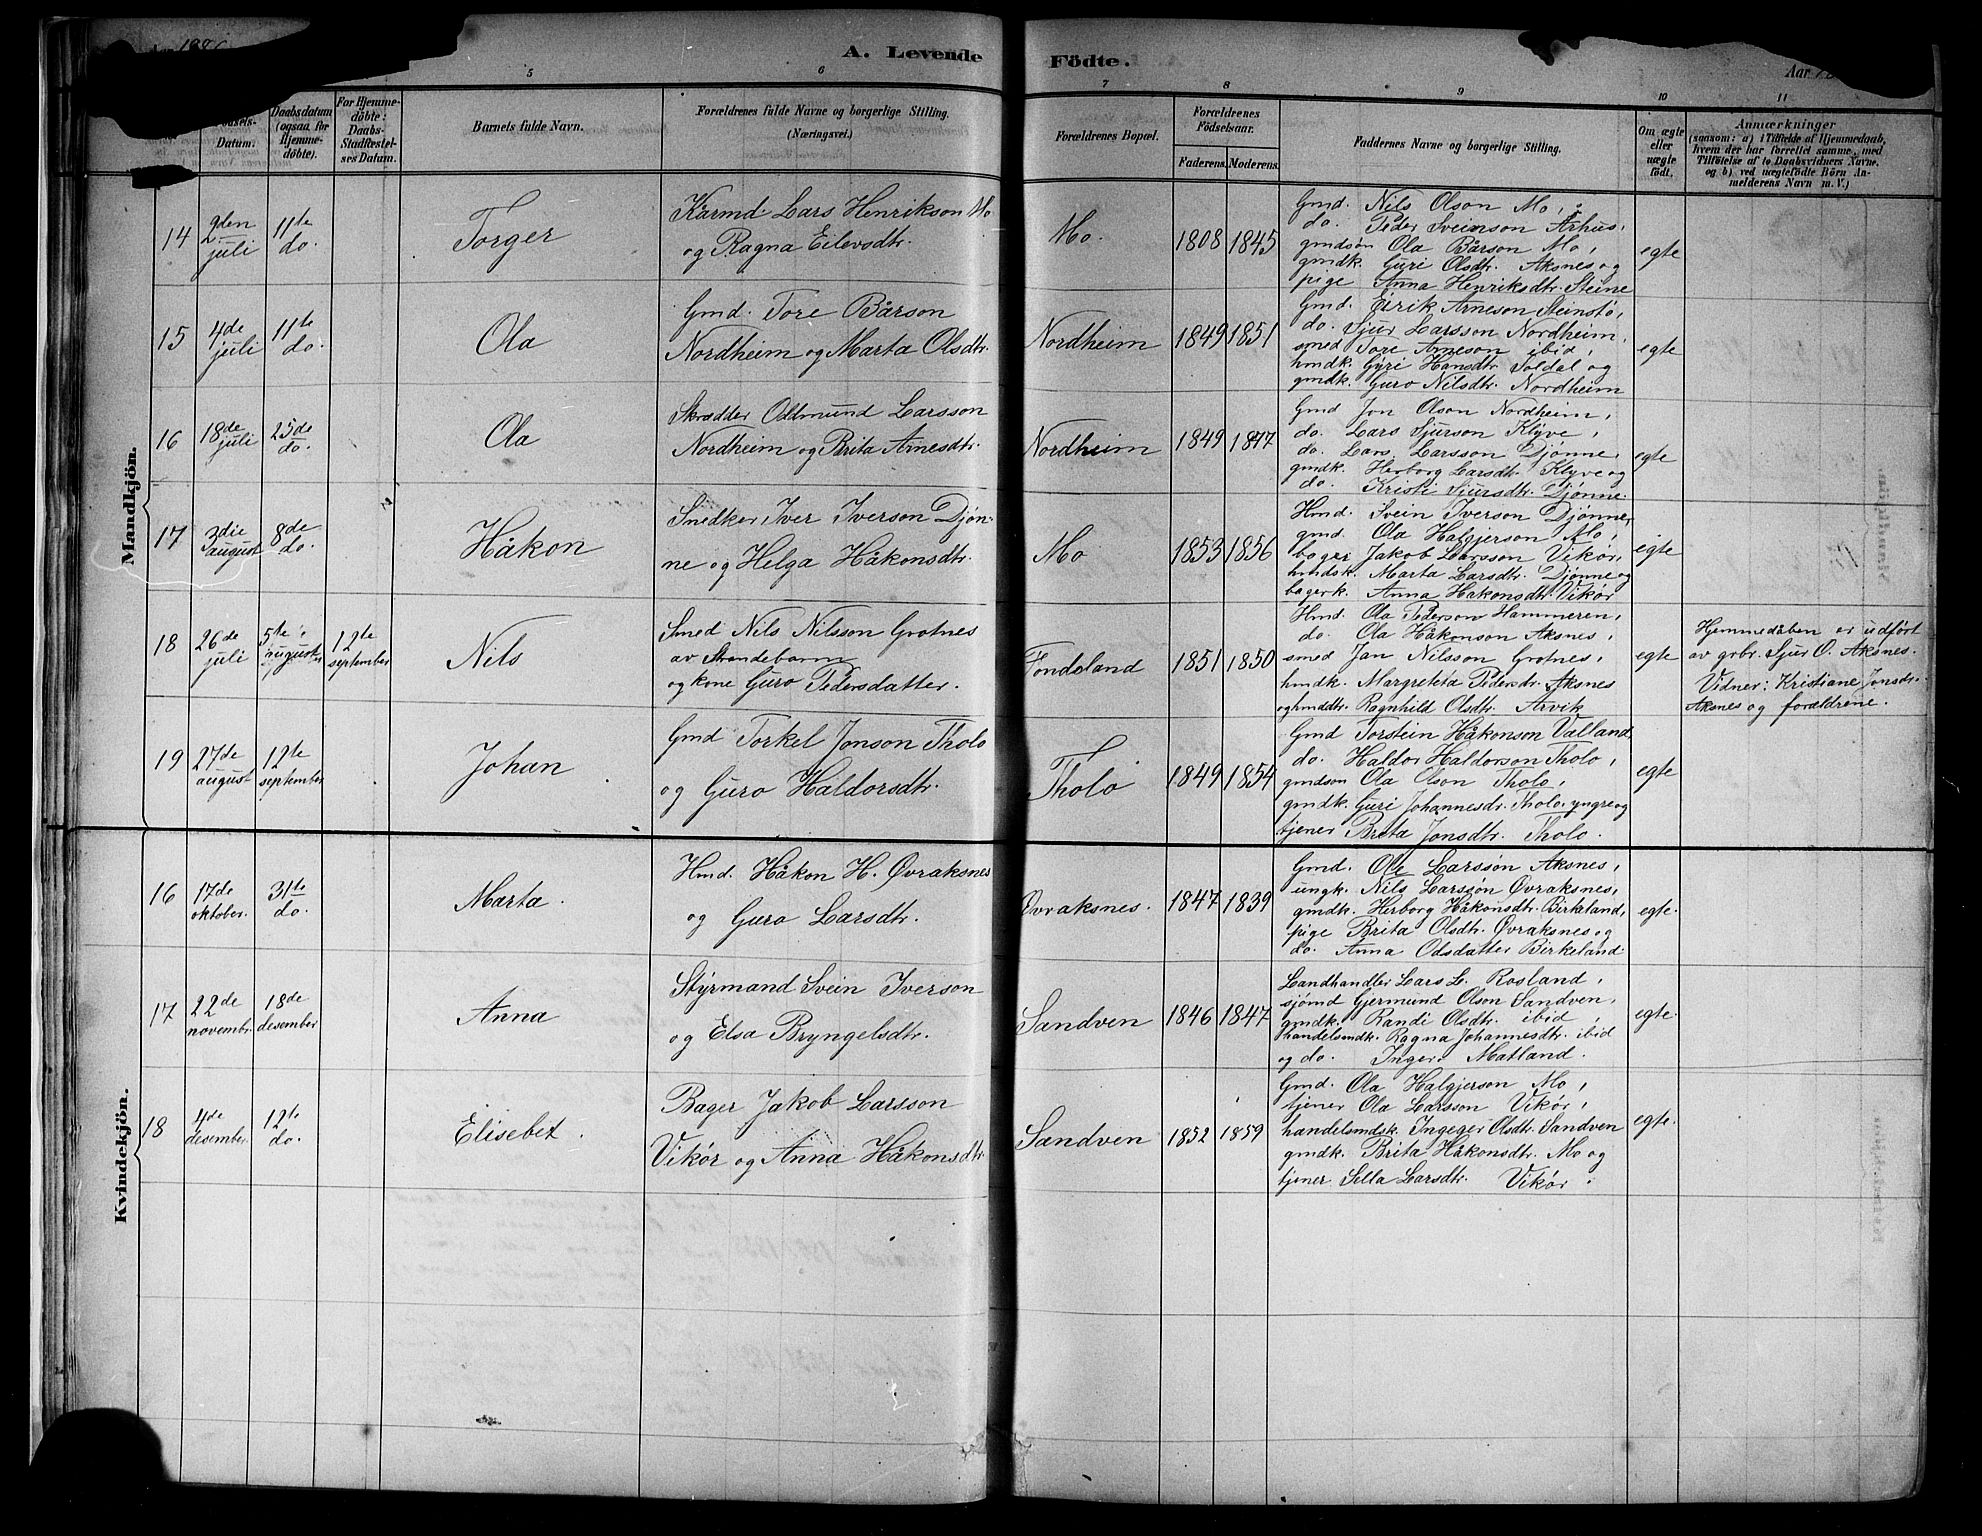 Aar 1886
A. Levende Fødte.
Aar 18
5 6 7 8 9 10 11
Datum.
Daabsdatum (ogsaa for Hjemme-døbte).
For Hjemme-døbte: Daabs-Stadfæstel-ses Datum.
Barnets fulde Navn.
Forældrenes fulde Navne og borgerlige Stilling. (Næringsvei.)
Forældrenes Bopæl.
Forældrenes Fødselsaar.
Faderens. Moderens.
Faddernes Navne og borgerlige Stilling.
Om ægte eller uægte født.
Anmærkninger
(saasom: a) i Tilfælde af Hjemmedaab, hvem der har forrettet samme, med Tilføielse af to Daabsvidners Navne, og b) ved uægtefødte Børn An-melderens Navn m. V.)
Mandkjön.
14 2den juli 11te do. Torger
Kårmd Lars Henrikson Mo
og Ragna Eilevsdtr.
Mo. 1808 1845
Gmd. Nils Olson Mo,
do. Peder Sveinson Århus,
gmdsøn Ola Bårson Mo,
gmdk. Guri Olsdtr. Aksnes og
pige Anna Henriksdtr. Steine
egte
15 4de juli 11te do. Ola
Gmd. Tore Bårson
Nordheim og Marta Olsdtr.
Nordheim 1849 1851
Gmd. Eirik Arneson Steinstø,
do. Sjur Larsson Nordheim,
smed Tore Arneson ibid,
hmdk. Gyri Hansdtr. Soldal og
gmdk. Guro Nilsdtr. Nordheim
egte
16 18de juli 25de do. Ola
Skrædder Oddmund Larsson
Nordheim og Brita Arnesdtr.
Nordheim 1849 1847
Gmd Jon Olson Nordheim,
do. Lars Sjurson Klyve,
do. Lars Larsson Djønne
gmdk. Herborg Larsdtr. Klyve og
do. Kristi Sjursdtr. Djønne.
egte
17 3die august 8de do. Håkon
Snedker Iver Iverson Djøn-
ne og Helga Håkonsdtr.
Mo 1853 1856
Hmd. Svein Iverson Djønne,
gmd. Ola Halgjerson Mo,
bager Jakob Larsson Vikør,
hmdsk. Marta Larsdtr. Djønne og
bagerk. Anna Håkonsdtr. Vikør
egte
18 26de juli 5te august 12te september Nils
Smed Nils Nilsson Grotnes
av Strandebarm
og kone Guro Pedersdatter.
Fondeland 1851 1850
Hmd. Ola Pederson Hammeren,
do. Ola Håkonson Aksnes,
smed Jan Nilsson Grotnes,
hmdk. Margreteta Pedersdr. Aksnes
og hmddtr. Ragnhild Olsdtr. Arvik
egte
Hjemmedåben er udført
av grbr. Sjur O. Aksnes.
Vidner: Kristiane Jonsdr.
Aksnes og forældrene.
19 27de august 12te september Johan
Gmd Torkel Jonson Tholo
og Guro Haldorsdtr.
Tholo 1849 1854
Gmd Torstein Håkonson Valland
do. Haldor Haldorson Tholo,
gmdson Ola Olson Tholo,
gmdk. Guri Johannesdr. Tholo, yngre og
tjener Brita Jonsdtr. Tholo.
egte
Kvindekjön.
16 17de oktober. 31te do. Marta.
Hmd. Håkon H. Øvraksnes
og Guro Larsdtr.
Øvraksnes. 1847 1839
Gmd. Ole Larsson Aksnes,
ungk. Nils Larsson Øvraksnes,
gmdk. Herborg Håkonsdtr. Birkeland,
pige Brita Olsdtr. Øvraksnes og
do. Anna Odsdatter Birkeland.
egte.
17 22de novembr. 18de desember Anna
Styrmand Svein Iverson
og Elsa Bryngelsdtr.
Sandven 1846 1847
Landhandler Lars L. Rosland,
sjømd Gjermund Olson Sandven,
gmdk. Randi Olsdtr. ibid,
handelsmdk. Ragna Johannesdtr. ibid
og do. Inger Matland.
egte.
18 4de desember 12te do. Elisebet.
Bager Jakob Larsson
Vikør og Anna Håkonsdtr.
Sandven 1852 1859
Gmd. Ola Halgjerson Mo,
tjener Ola Larsson Vikør,
handelsmdsk. Ingeger Olsdtr. Sandven
gmdk. Brita Håkonsdtr. Mo og
tjener Silla Larsdtr. Vikør.
egte.